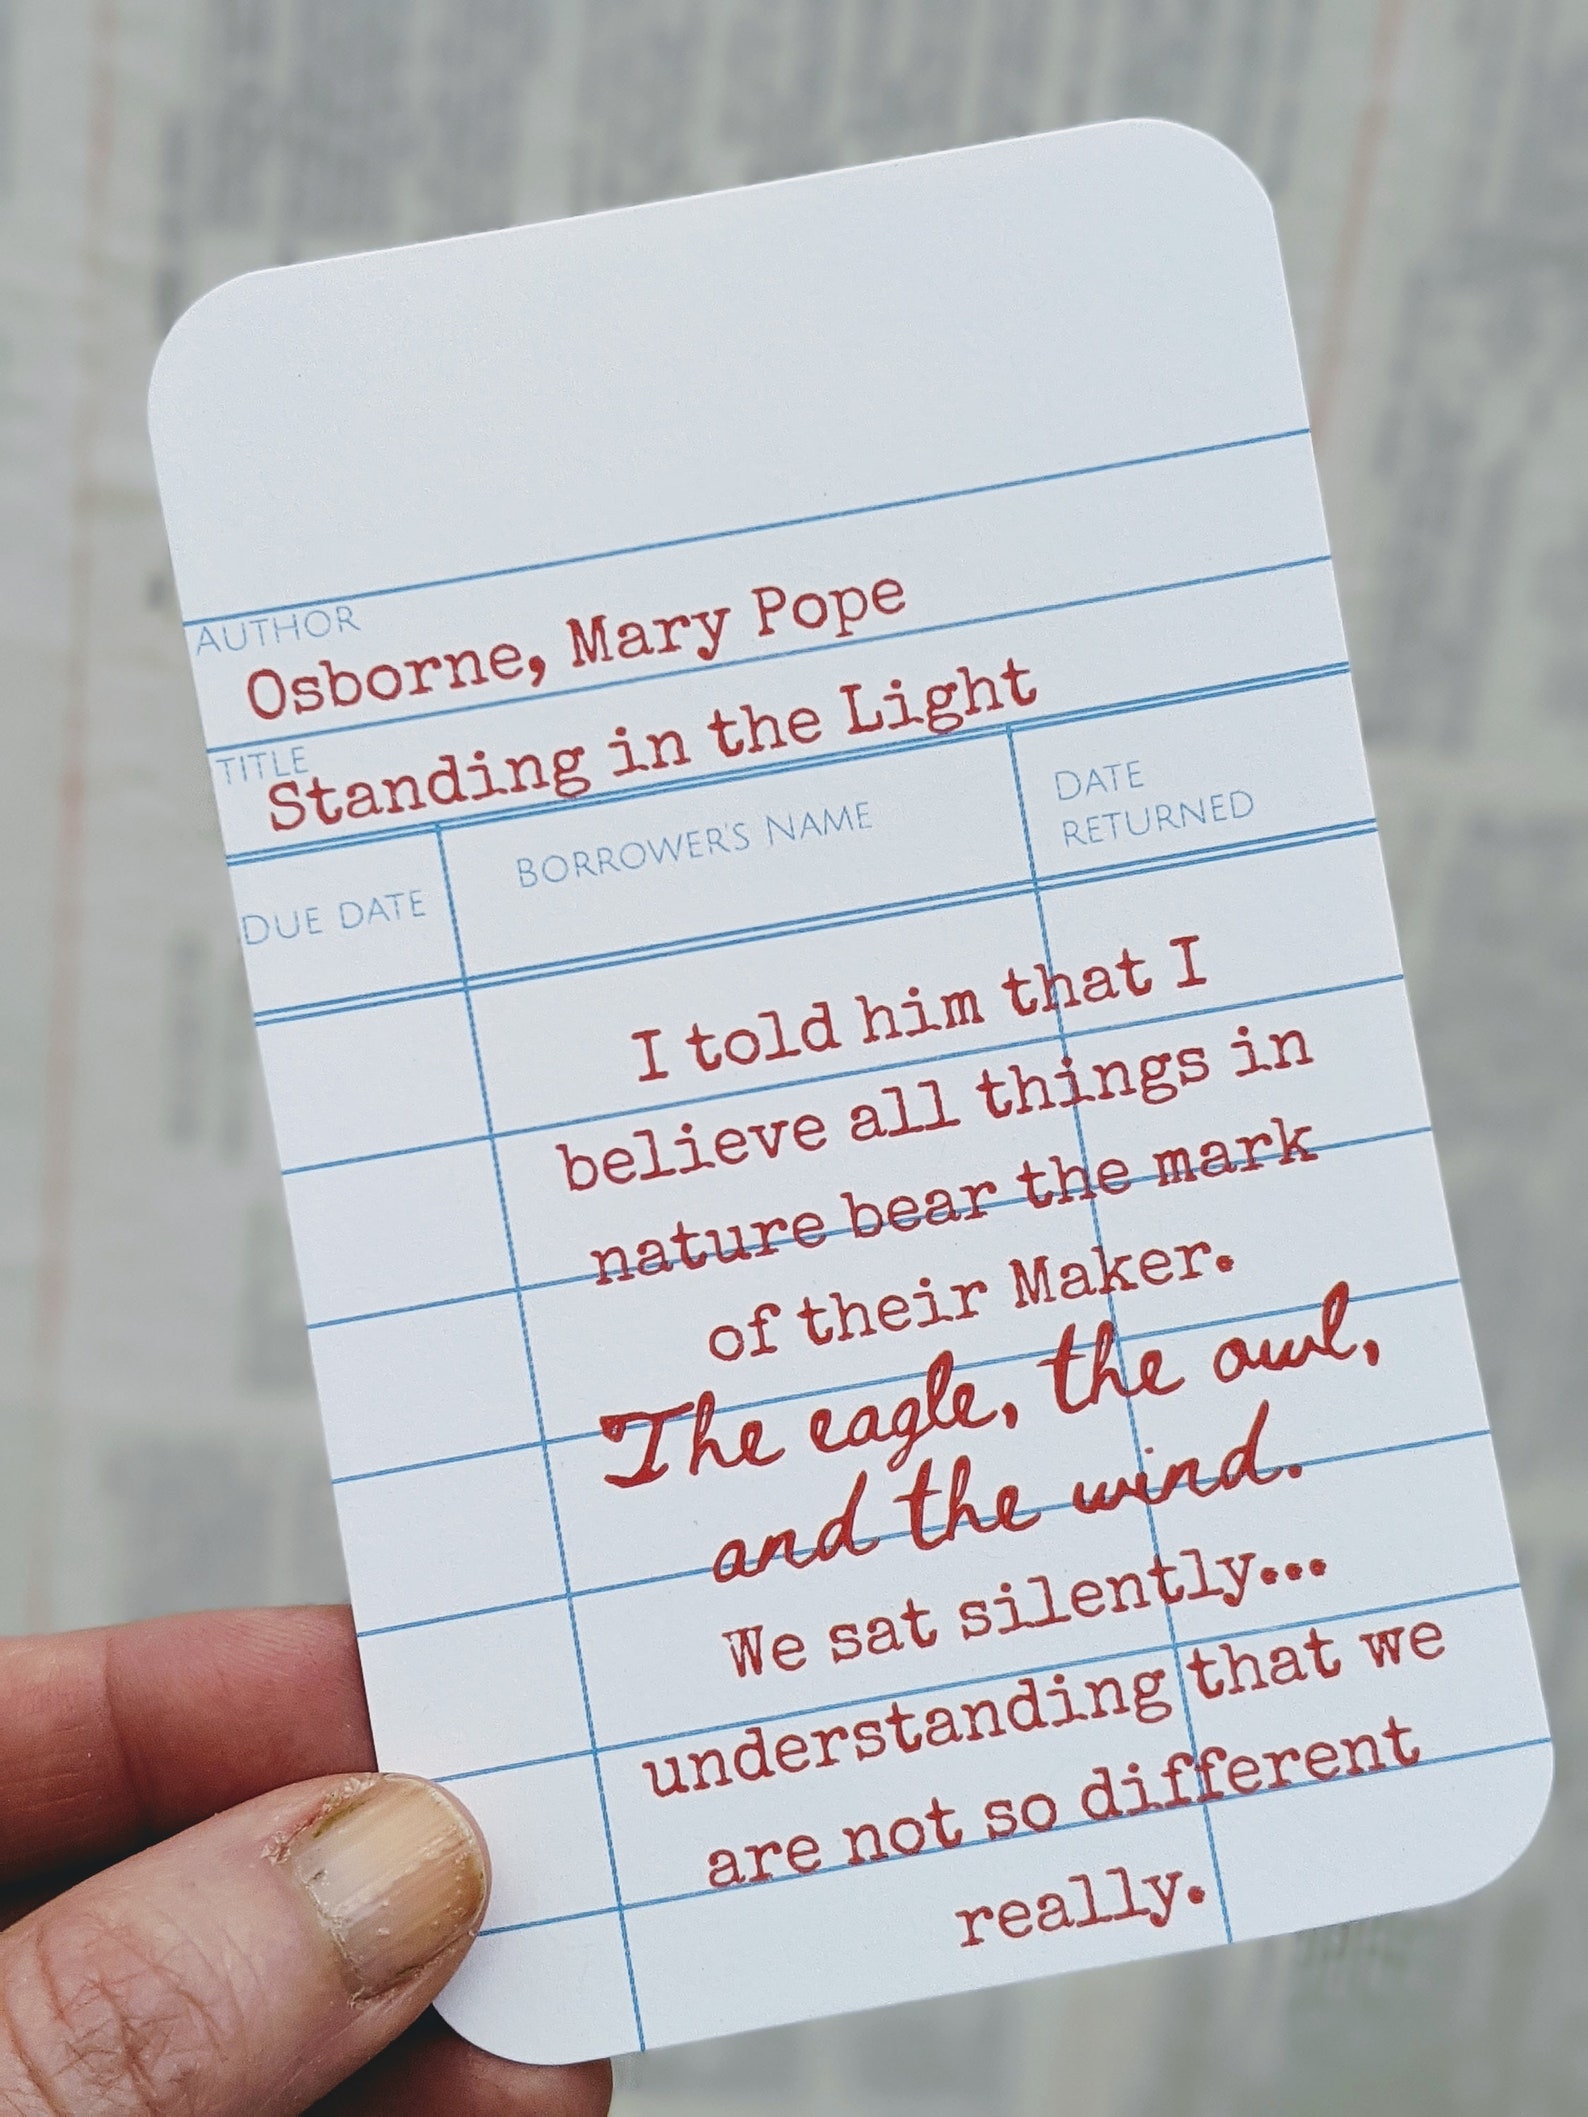 AUTHOR
Osborne, Mary Pope
TITLE
Standing in the Light
DUE DATE
BORROWER'S NAME
DATE
RETURNED
I told him that I
believe all things in
nature bear the mark
of their Maker.
The eagle, the owl,
and the wind.
We sat silently...
understanding that we
are not so different
really.